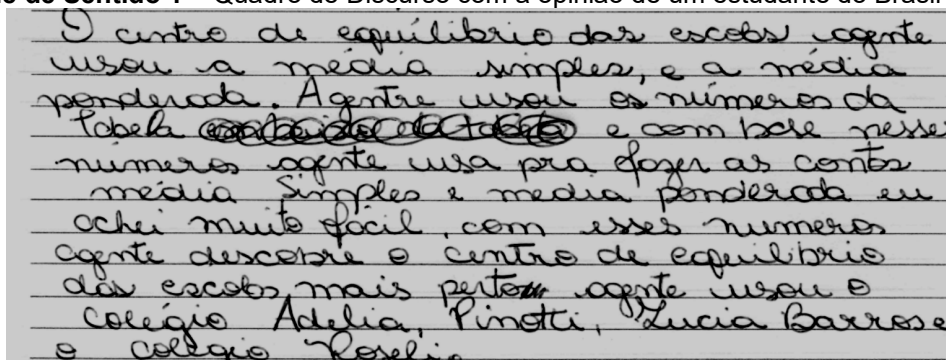 de Sentido 1 – Quadro de Discurso com a opinião de um estudante do Brasil
O centro de equilíbrio das escobs agente
usou a média simples, e a média
ponderada. Agentre usou os números da
Tabela e com base nesses
números agente usa pra fazer as contas
média Simples e media ponderada eu
achei muito fácil, com esses numeros
agente descobre o centro de equilibrio
das escolas mais perto agente usou o
colégio Adelia, Pinotti, Lucia Barros e
o colégio Roselia